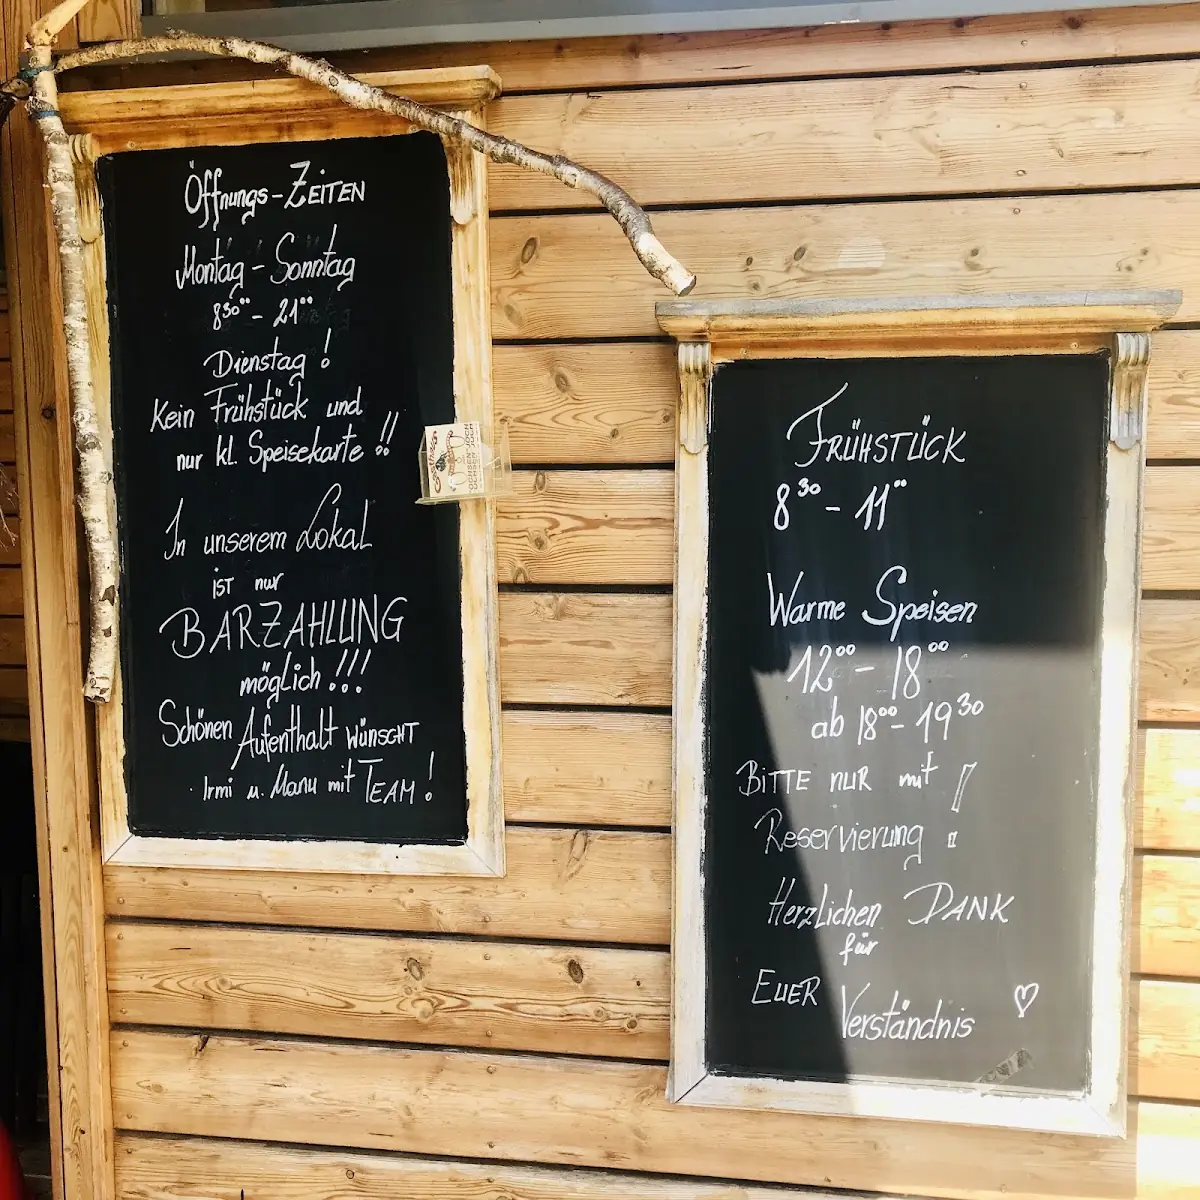 Öffnungs-ZEITEN
Montag - Sonntag
8³⁰ - 21°°
Dienstag !
Kein Frühstück und
nur kl. Speisekarte !!
In unserem Lokal
ist nur
BARZAHLUNG
möglich !!!
Schönen Aufenthalt WÜNSCHT
Irmi u. Manu mit TEAM !
OCHSEN JOCH
FRÜHSTÜCK
8³⁰ - 11°°
Warme Speisen
12°° - 18°°
ab 18°° - 19³⁰
BITTE NUR mit !
Reservierung
Herzlichen DANK
für
EUER Verständnis